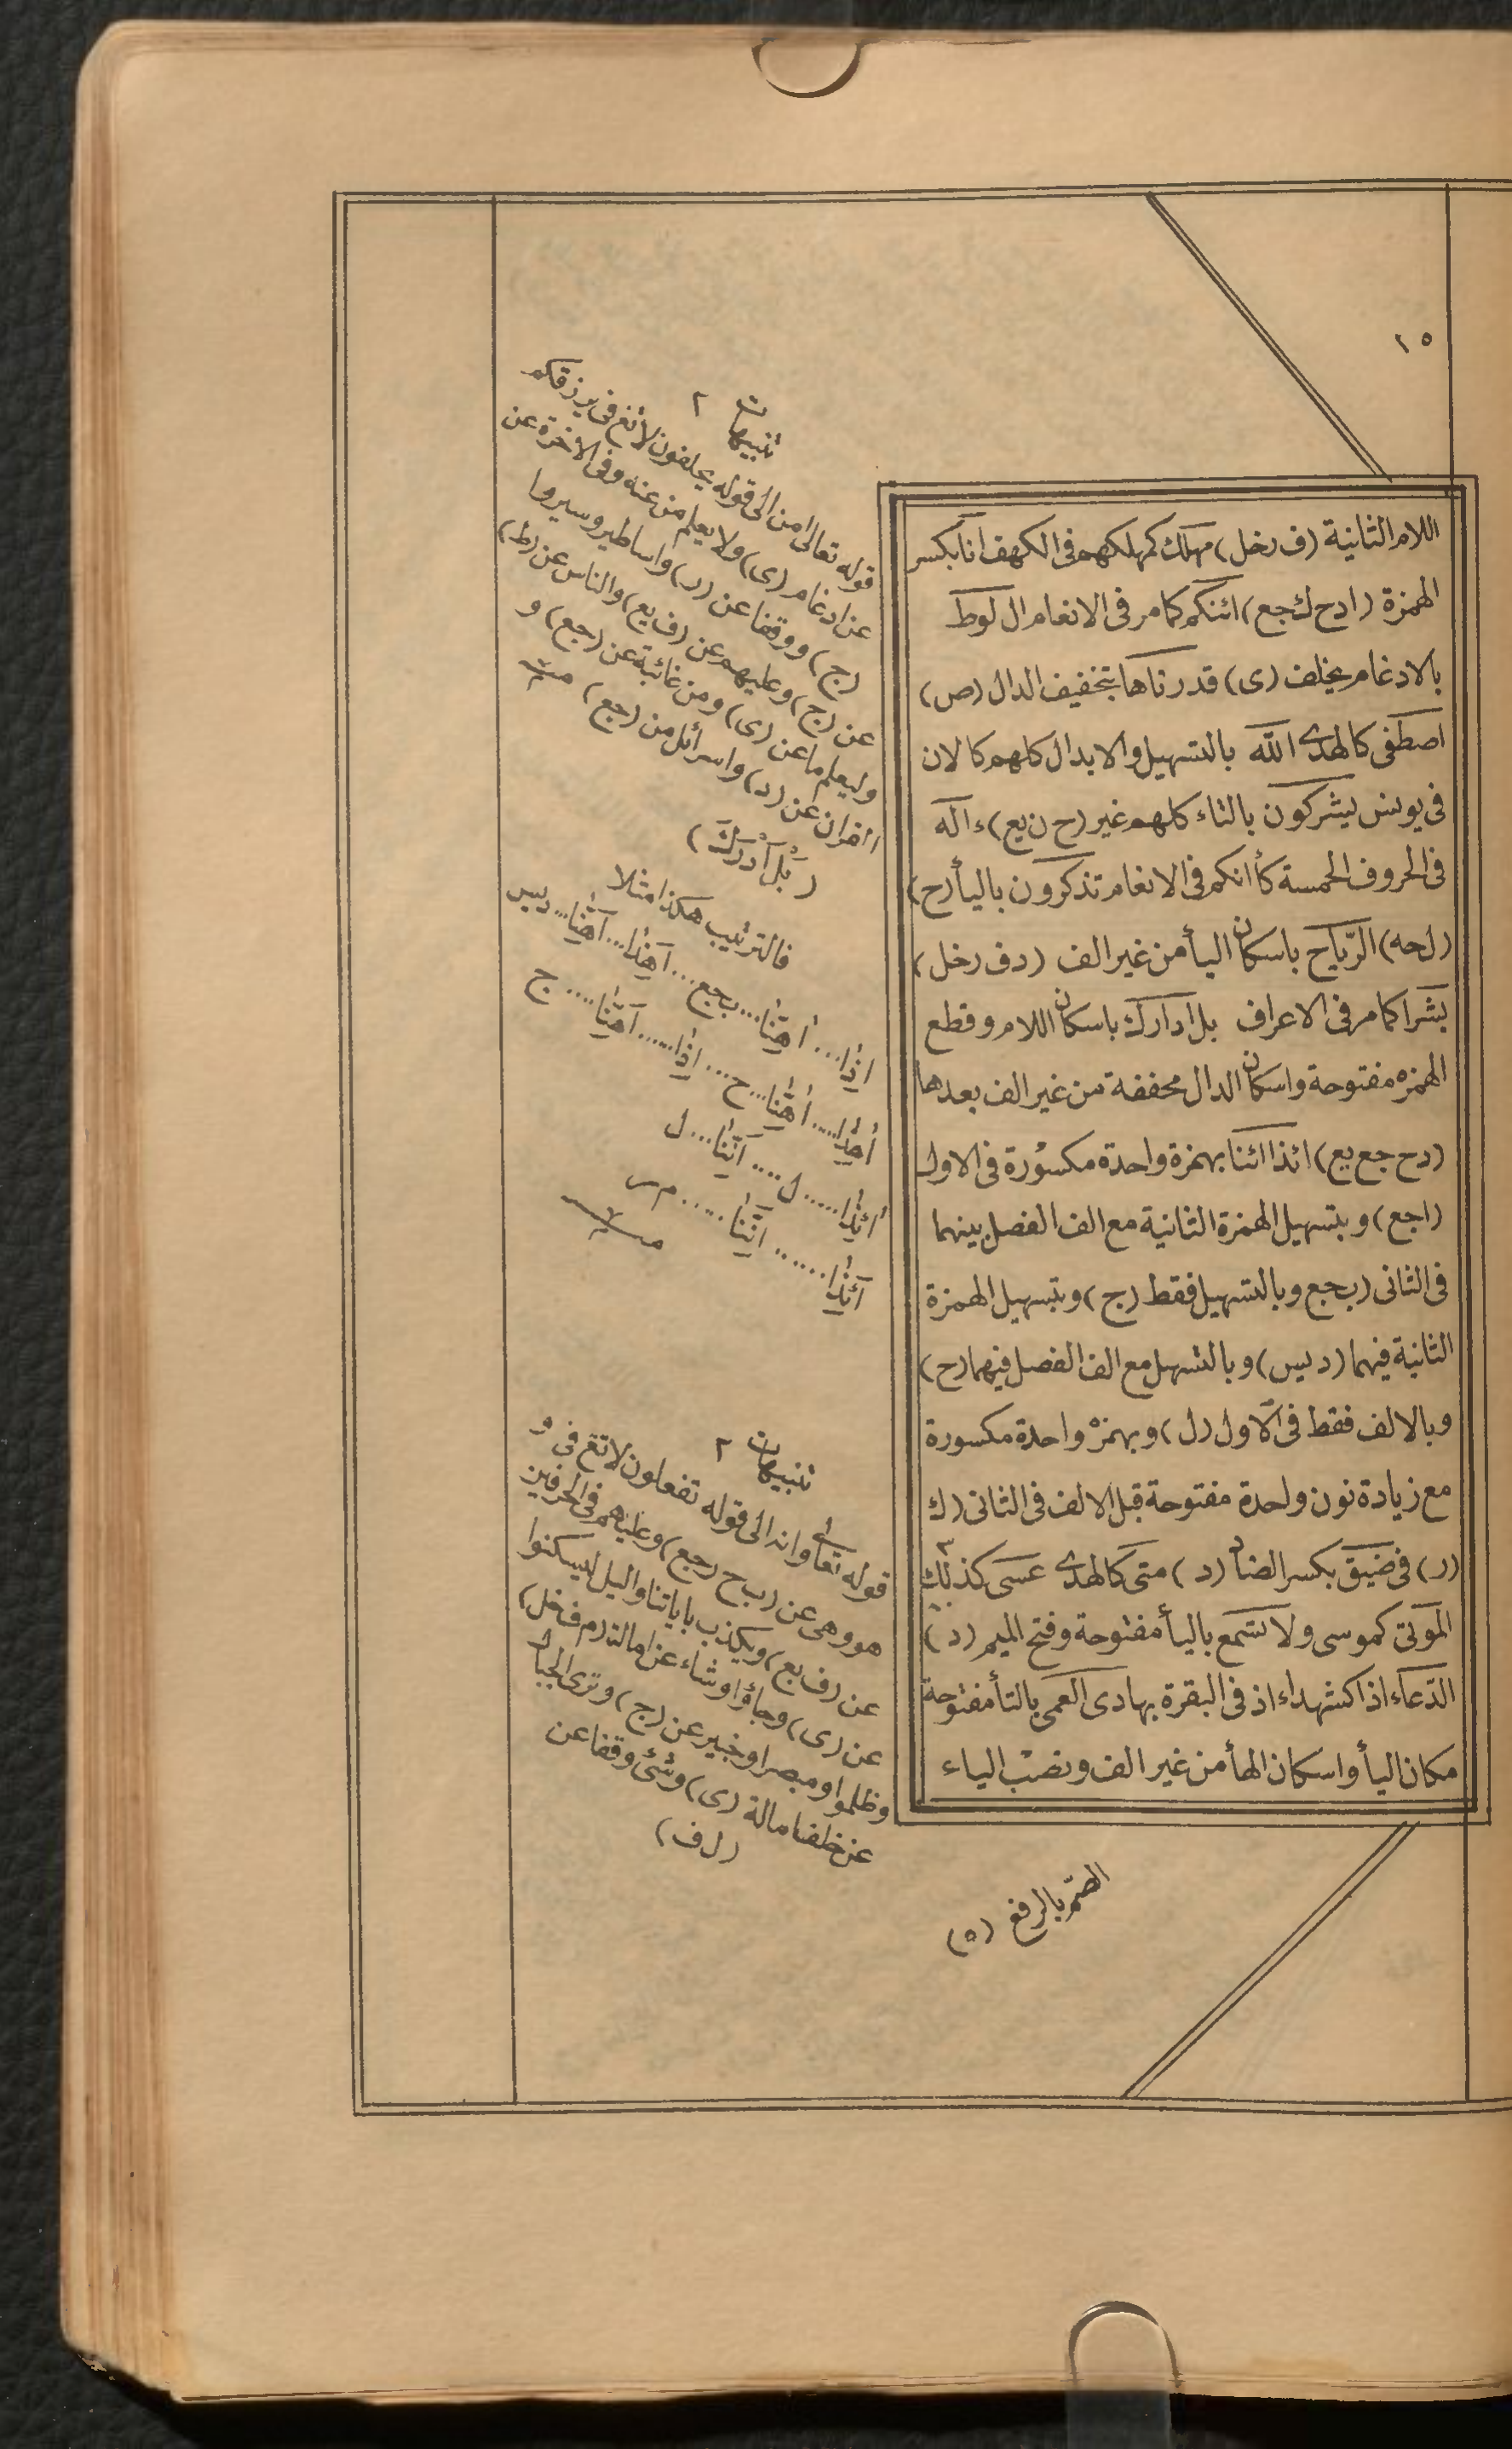 ١٥
اللام الثانية (ف رخل) مهلك كمهلكهم فى الكهف انا بكسر
الهمزة (ادح ك جع) ائنكم كما مر فى الانعام ال لوط
بالادغام بخلف (ى) قدرناها بتخفيف الدال (ص)
اصطفى كالهدى الله بالتسهيل والابدال كلهم كالان
فى يونس يشركون بالتاء كلهم غير (ح ن يع) ءاله
فى الحروف الخمسة كأانكم فى الانعام تذكرون باليأ (ح)
(لحه) الرّياح باسكان اليأ من غير الف (دف رخل)
بشرا كما مر فى الاعراف بل ادارك باسكان اللام وقطع
الهمزه مفتوحة واسكان الدال مخففة من غير الف بعدها
(دح جع يع) ائذا ائنا بهمزة واحدة مكسورة فى الاول
(اجع) وبتسهيل الهمزة الثانية مع الف الفصل بينهما
فى الثانى (ب جع وبالتسهيل فقط (ج) وبتسهيل الهمزة
الثانية فيهما (د يس) وبالتسهيل مع الف الفصل فيهما (ح)
وبالالف فقط فى الاول (ل) وبهمزه واحدة مكسورة
مع زيادة نون واحدة مفتوحة قبل الالف فى الثانى (ك
(ر) فى ضيق بكسر الضاد (د) متى كالهدى عسى كذلك
الموتى كموسى ولا تسمع باليأ مفتوحة وفتح الميم (د)
الدّعاء اذا كشهداء اذ فى البقرة بهادى العمى بالتأ مفتوحة
مكان اليأ واسكان الهأ من غير الف ونصب الياء
الصّم بالرفع (٥)
تنبيهات ٢
قوله تعالى امن الى قوله يحلفون لاتغ فى يرزقكم
عن ادغام (ى) ولا يعلم من عنه وفى الاخرة عن
(ج) ووقفا عن (ر) واساطير وسيروا
عن (ج) وعليهم عن (ف يع) والناس عن (ط)
وليعلم ما عن (ى) ومن غائبة عن (جع) و
القران عن (د) واسرائل من (جع)
(بَلْ أَدْرَكَ)
فالترتيب هكذا مثلا
اذا ... اهنا ... ب جع ... آهذا ... آهنا ... د يس
أهذا .... اهنا ... ح ... اذا ...... آهنا .... ج
أائذا ..... ل .... آئنا ... ل
آئذا ...... اننا ..... م ر
تنبيهات ٢
قوله تعالى وانه الى قوله تفعلون لاتغ فى و
هو وهى عن (ب ح رجع) وعليهم فى الحرفين
عن (ف يع) ويكذب باياتنا واليل ليسكنوا
عن (ى) وجاؤا وشاء عن امالة (م ف خل)
وظلموا ومبصرا وخبير عن (ج) وترى الجبال
عن خلف امالة (ى) وشئ وقفا عن
(ل ف)